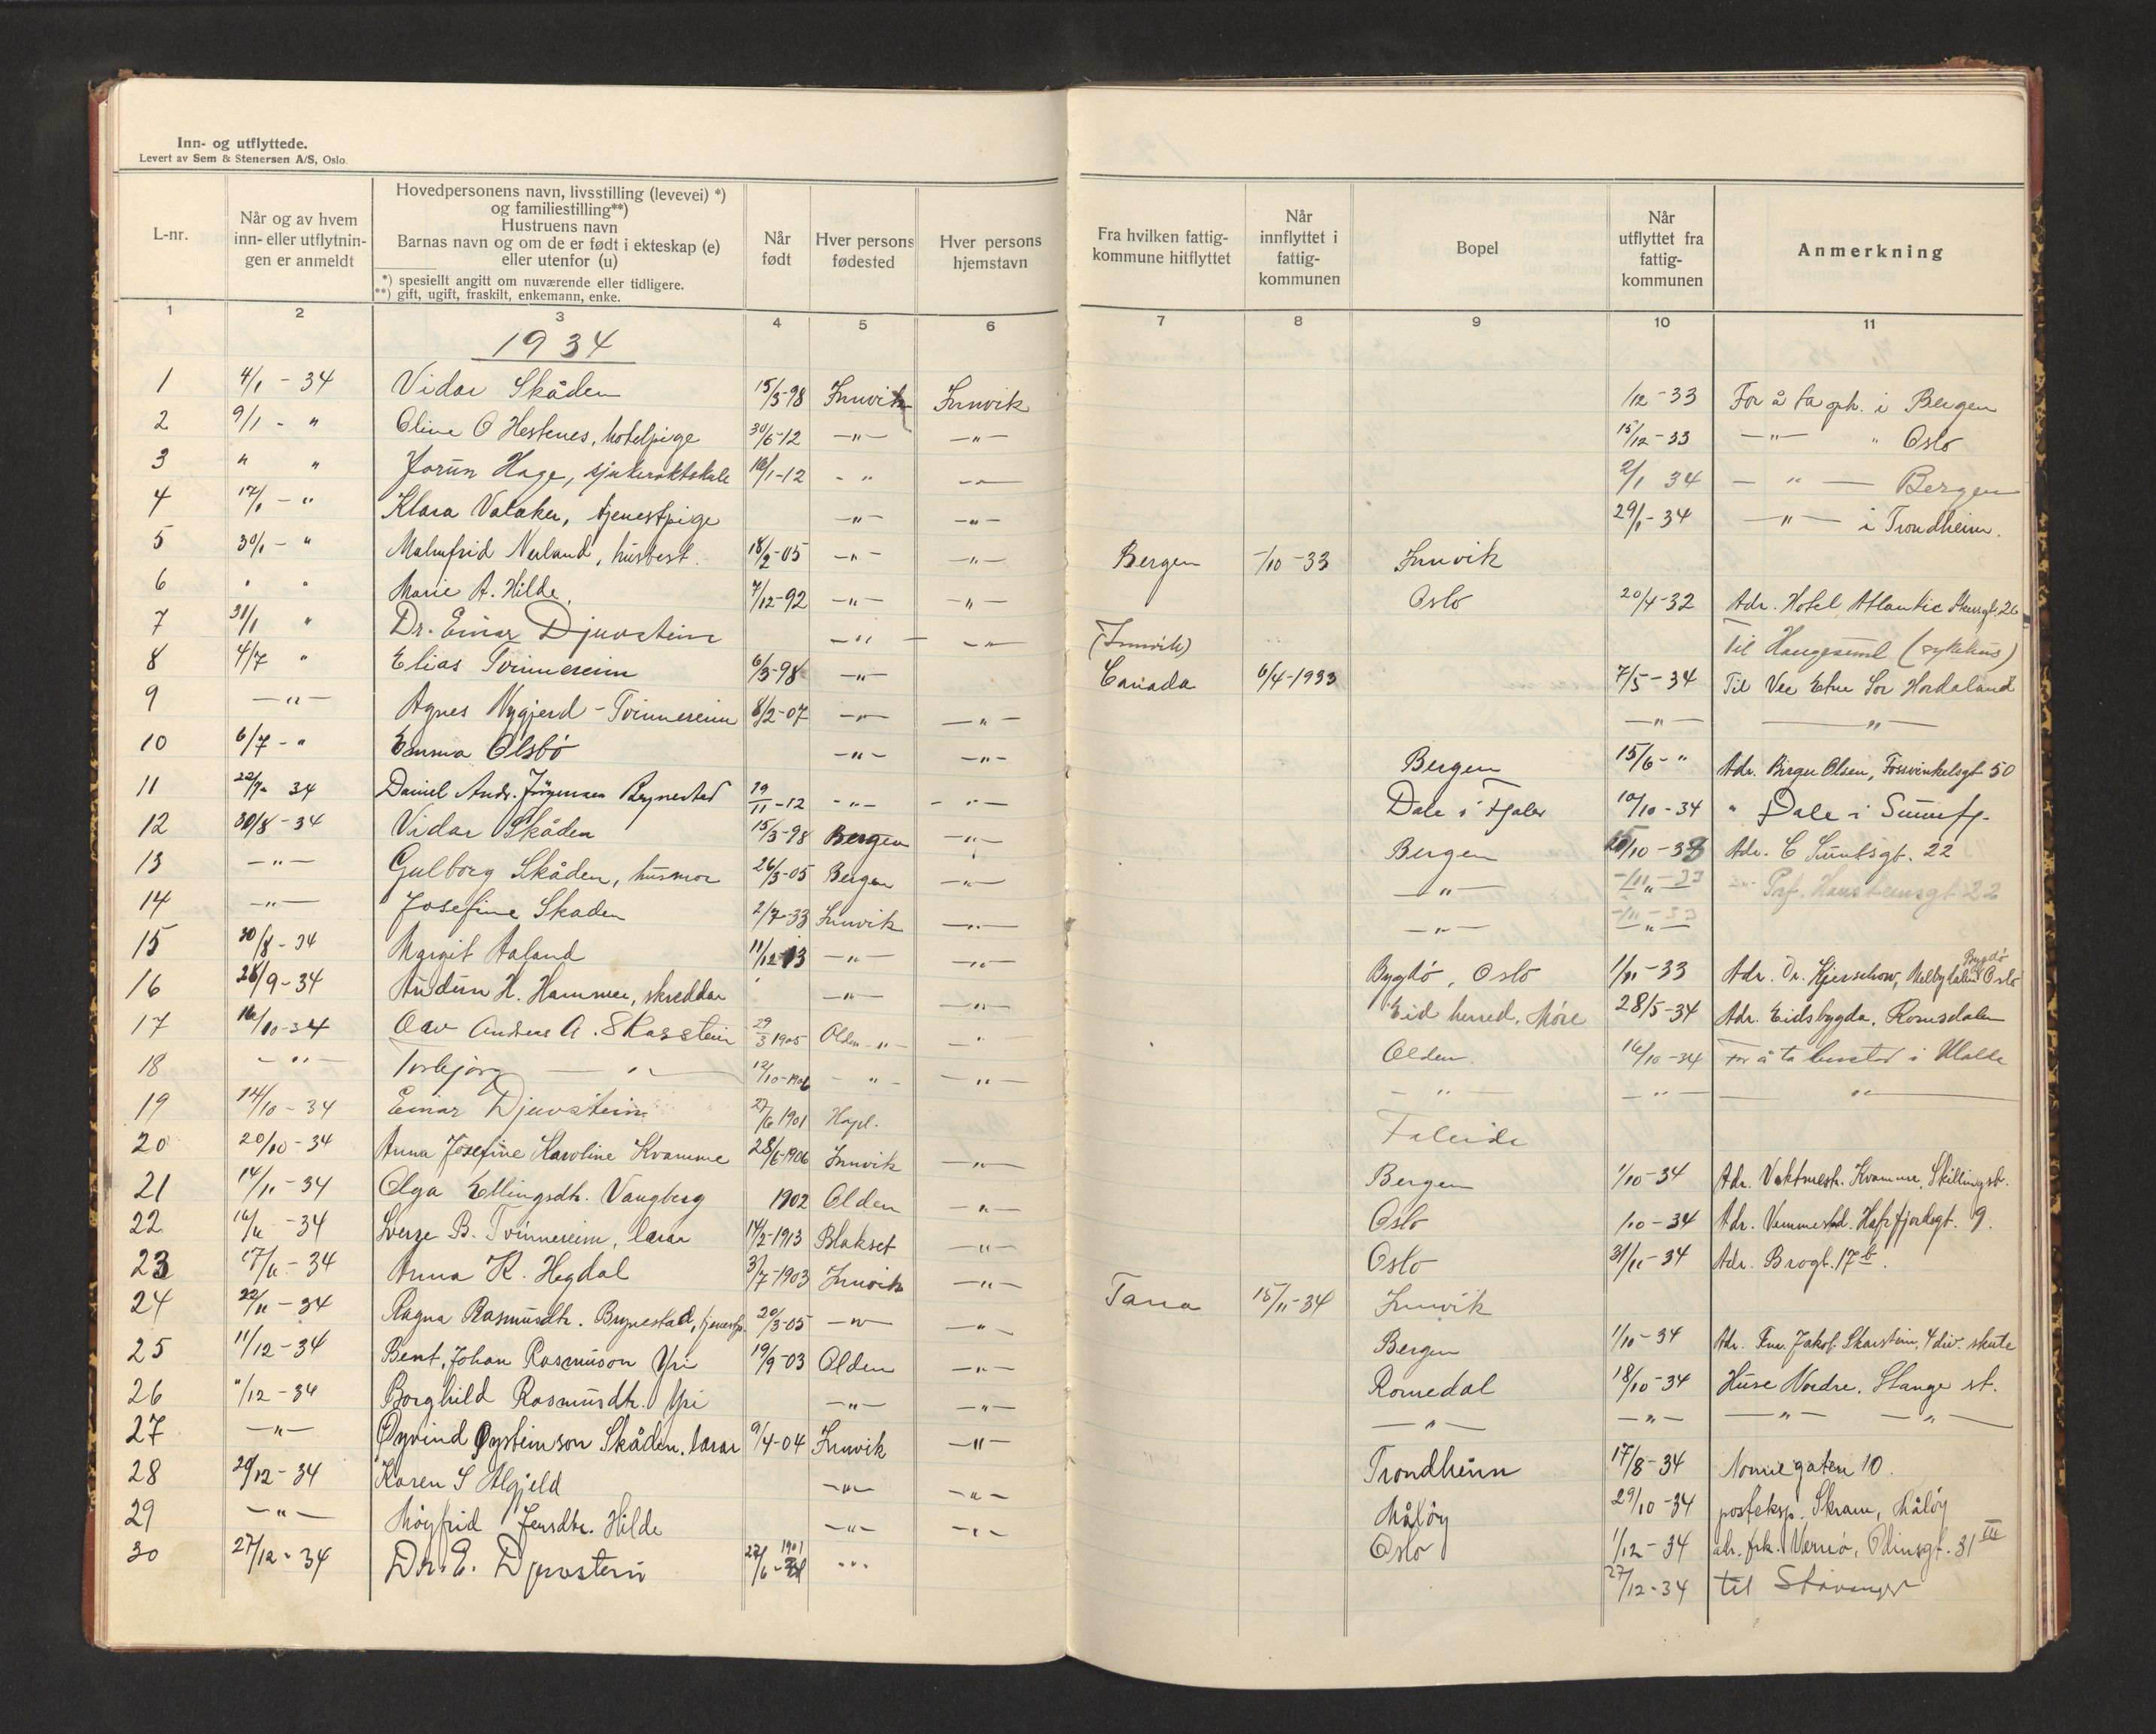 Inn- og utflyttede.
Levert av Sem & Stenersen A/S, Oslo.
L-nr.
Når og av hvem
inn- eller utflytnin-
gen er anmeldt
Hovedpersonens navn, livsstilling (levevei) *)
og familiestilling**)
Hustruens navn
Barnas navn og om de er født i ekteskap (e)
eller utenfor (u)
*) spesiellt angitt om nuværende eller tidligere.
**) gift, ugift, fraskilt, enkemann, enke.
Når
født
Hver persons
fødested
Hver persons
hjemstavn
Fra hvilken fattig-
kommune hitflyttet
Når
innflyttet i
fattig-
kommunen
Bopel
Når
utflyttet fra
fattig-
kommunen
Anmerkning
1 2 3 4 5 6 7 8 9 10 11
1934
1 4/1 - 34 Vidar Skåden 15/3-98 Innvik Innvik 1/12-33 For å ta oph. i Bergen
2 9/1 - " Oline O Hestenes, hotelpige 30/6-12 -"- -"- 15/12-33 -"- " Oslo
3 " " Jorun Hage, 10/1-12 - " -"- 2/1 34 - " - Bergen
4 17/1 - " Klara Valaker, tjenestpige -"- -"- 29/1-34 -"- i Trondheim.
5 30/1 - " Malmfrid Nerland, husbest. 18/2-05 -"- -"- Bergen -/10-33 Innvik
6 " " Marie A. Hilde. 7/12-92 -"- -"- Oslo 20/4-32 Adr. Hotel Atlantic 26
7 31/1 " Dr. Einar Djuvstein -"- -"- (Innvik) Til Haugesund (sykehus)
8 4/7 " Elias Tvinnereim 6/3-98 -"- Canada 6/4-1933 7/5-34 Til Etne Sør Hordaland
9 -"- Agnes Nygjerd-Tvinnereim 8/2-07 -"- -"- -"- -"-
10 6/7 - " Emma Olsbö -"- -"- Bergen 15/6-" Adr. Birger Olsen, Fossvinkelsgt 50
11 22/9- 34 Daniel Andr. Jörgensen Brynestad 19/11-12 -"- -"- Dale i Fjaler 10/10-34 " Dale i Sunnfj.
12 30/8-34 Vidar Skåden 15/3-98 Bergen -"- Bergen 15/10-33 Adr. C Suntsgt. 22
13 -"- Gulborg Skåden, husmor 26/3-05 Bergen -"- -"- -/11-33 Prof. Hansteensgt 22
14 -"- Josefine Skaden 2/7-33 Innvik -"- -"- -/11-33
15 30/8-34 Margit Aaland 11/12-13 -"- -"- Bygdö, Oslo 1/11-33 Adr. Dr. Kjerschow, Bygdö Oslo
16 28/9-34 Audun H. Hammer, skreddar -"- -"- Eid herred, Möre 28/5-34 Adr. Eidsbygda, Romsdalen
17 16/10-34 Olav Andreas A. Skarstein 29/3 1905 Olden -"- -"- Olden 16/10-34 For å ta bustad i
18 -"- Torbjörg -"- 12/10-1906 - " - -"- - " - -"- -"-
19 14/10-34 Einar Djuvstein 27/6 1901 Faleide
20 20/10-34 Anna Josefine Karoline Kvamme 28/6-1906 Innvik -"- Bergen 1/10-34 Adr. Vaktmestr. Kvamme, Skillingsb.
21 14/11-34 Olga Ellingsdtr. Vangberg 1902 Olden -"- Oslo /10-34 Adr. Vemmestad. Hafrsfjordsgt. 9.
22 16/11-34 Sverge B. Tvinnereim, lærar 14/2-1913 Blakset -"- Oslo 31/11-34 Adr. Brogt. 17b.
23 17/11-34 Anna K. Hegdal 3/7-1903 Innvik -"- Tana 15/11-34 Innvik
24 22/11-34 Ragna Rasmusdtr. Brynestad, tjenestp. 20/3-05 -"- -"- Bergen 1/10-34 Adr. Fru. Jakob Skarstein, 4 div. skute
25 11/12-34 Bent. Johan Rasmuson Yri 19/9-03 Olden -"- Romedal 18/10-34 Huse Nordre. Stange st.
26 "/12-34 Borghild Rasmusdtr. Yri -"- -"- -"- -"- -"- -"-
27 -"- Øyvind Øysteinson Skåden, lærar 9/4-04 Innvik -"- Trondheim 17/8-34 10.
28 20/12-34 Karen S Algjeld -"- -"- Målöy 29/10-34 posteksp. Skram, Målöy
29 -"- Möyfrid Jensdtr. Hilde -"- -"- Oslo 1/12-34 adr. frk. Odinsgt. 31 III
30 27/12-34 Dr. E. Djuvstein 27/6-1901 -"- 27/12-34 til Stavanger